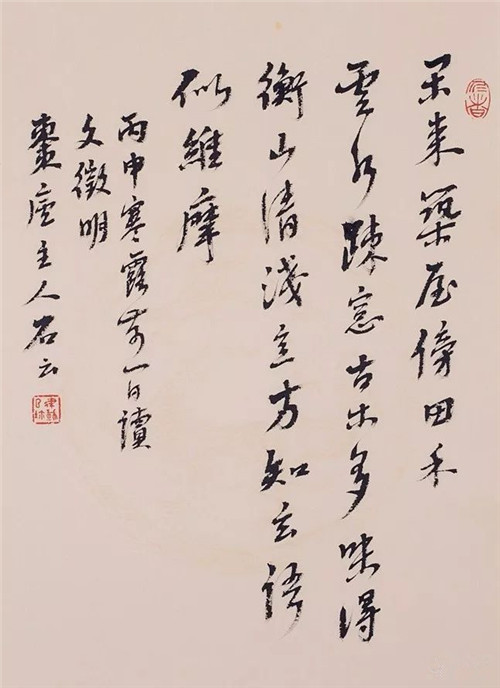 閑来築屋傍田禾
雲水疎窓古木多味得
衡山清淺意方知玄語
似維摩
丙申寒露前一日讀
文徵明
棗廬主人石云